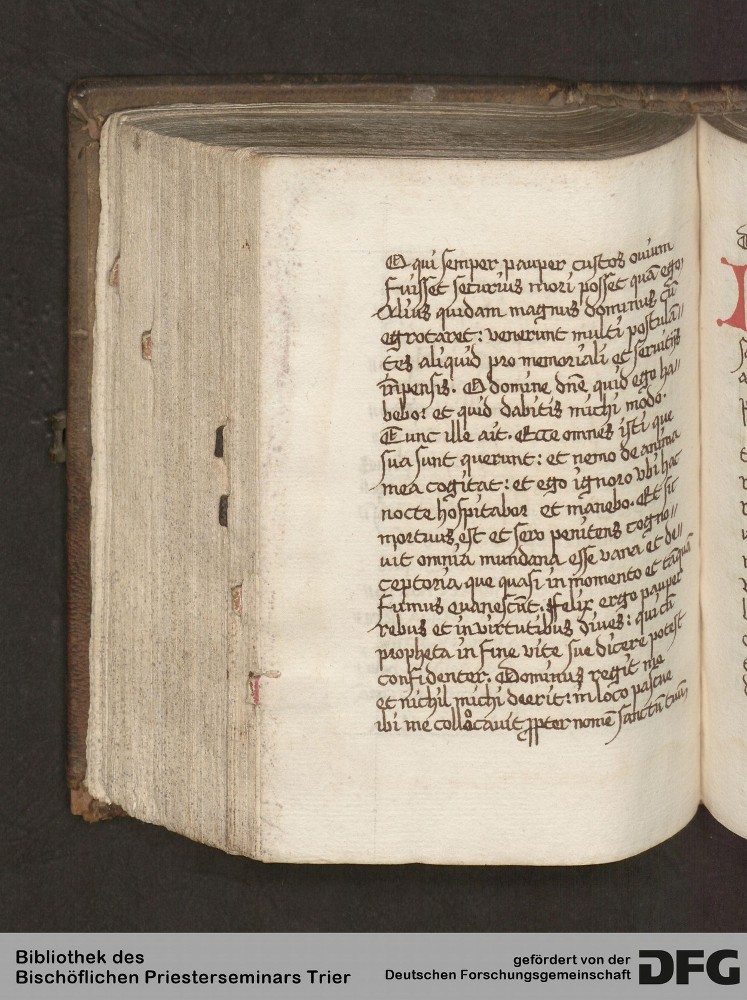 O qui semper pauper custos ouium
fuisset securius mori posset quā ego,
Alius quidam magnus dominus cū
egrotaret: venerunt multi postulā//
tes aliquid pro memoriali et seruitijs
īnpensis. O domine dn̄e quid ego ha//
bebo: et quid dabitis michi modo.
Tunc ille ait. Ecce omnes isti que
sua sunt querunt: et nemo de anima
mea cogitat: et ego ignoro vbi hac
nocte hospitabor et manebo. Et sic
mortuus est et sero penitens cogno//
uit omnia mundana esse vana et de//
ceptoria que quasi in momento et tāquā
fumus euanescūt. Felix ergo pauper
rebus et in virtutibus diues: qui cū
propheta in fine vite sue dicere potest
confidenter. Dominus regit me
et nichil michi deerit: in loco pascue
ibi me collocauit ꝓpter nomē sanctū tuū,
Bibliothek des
Bischöflichen Priesterseminars Trier
gefördert von der
Deutschen Forschungsgemeinschaft
DFG